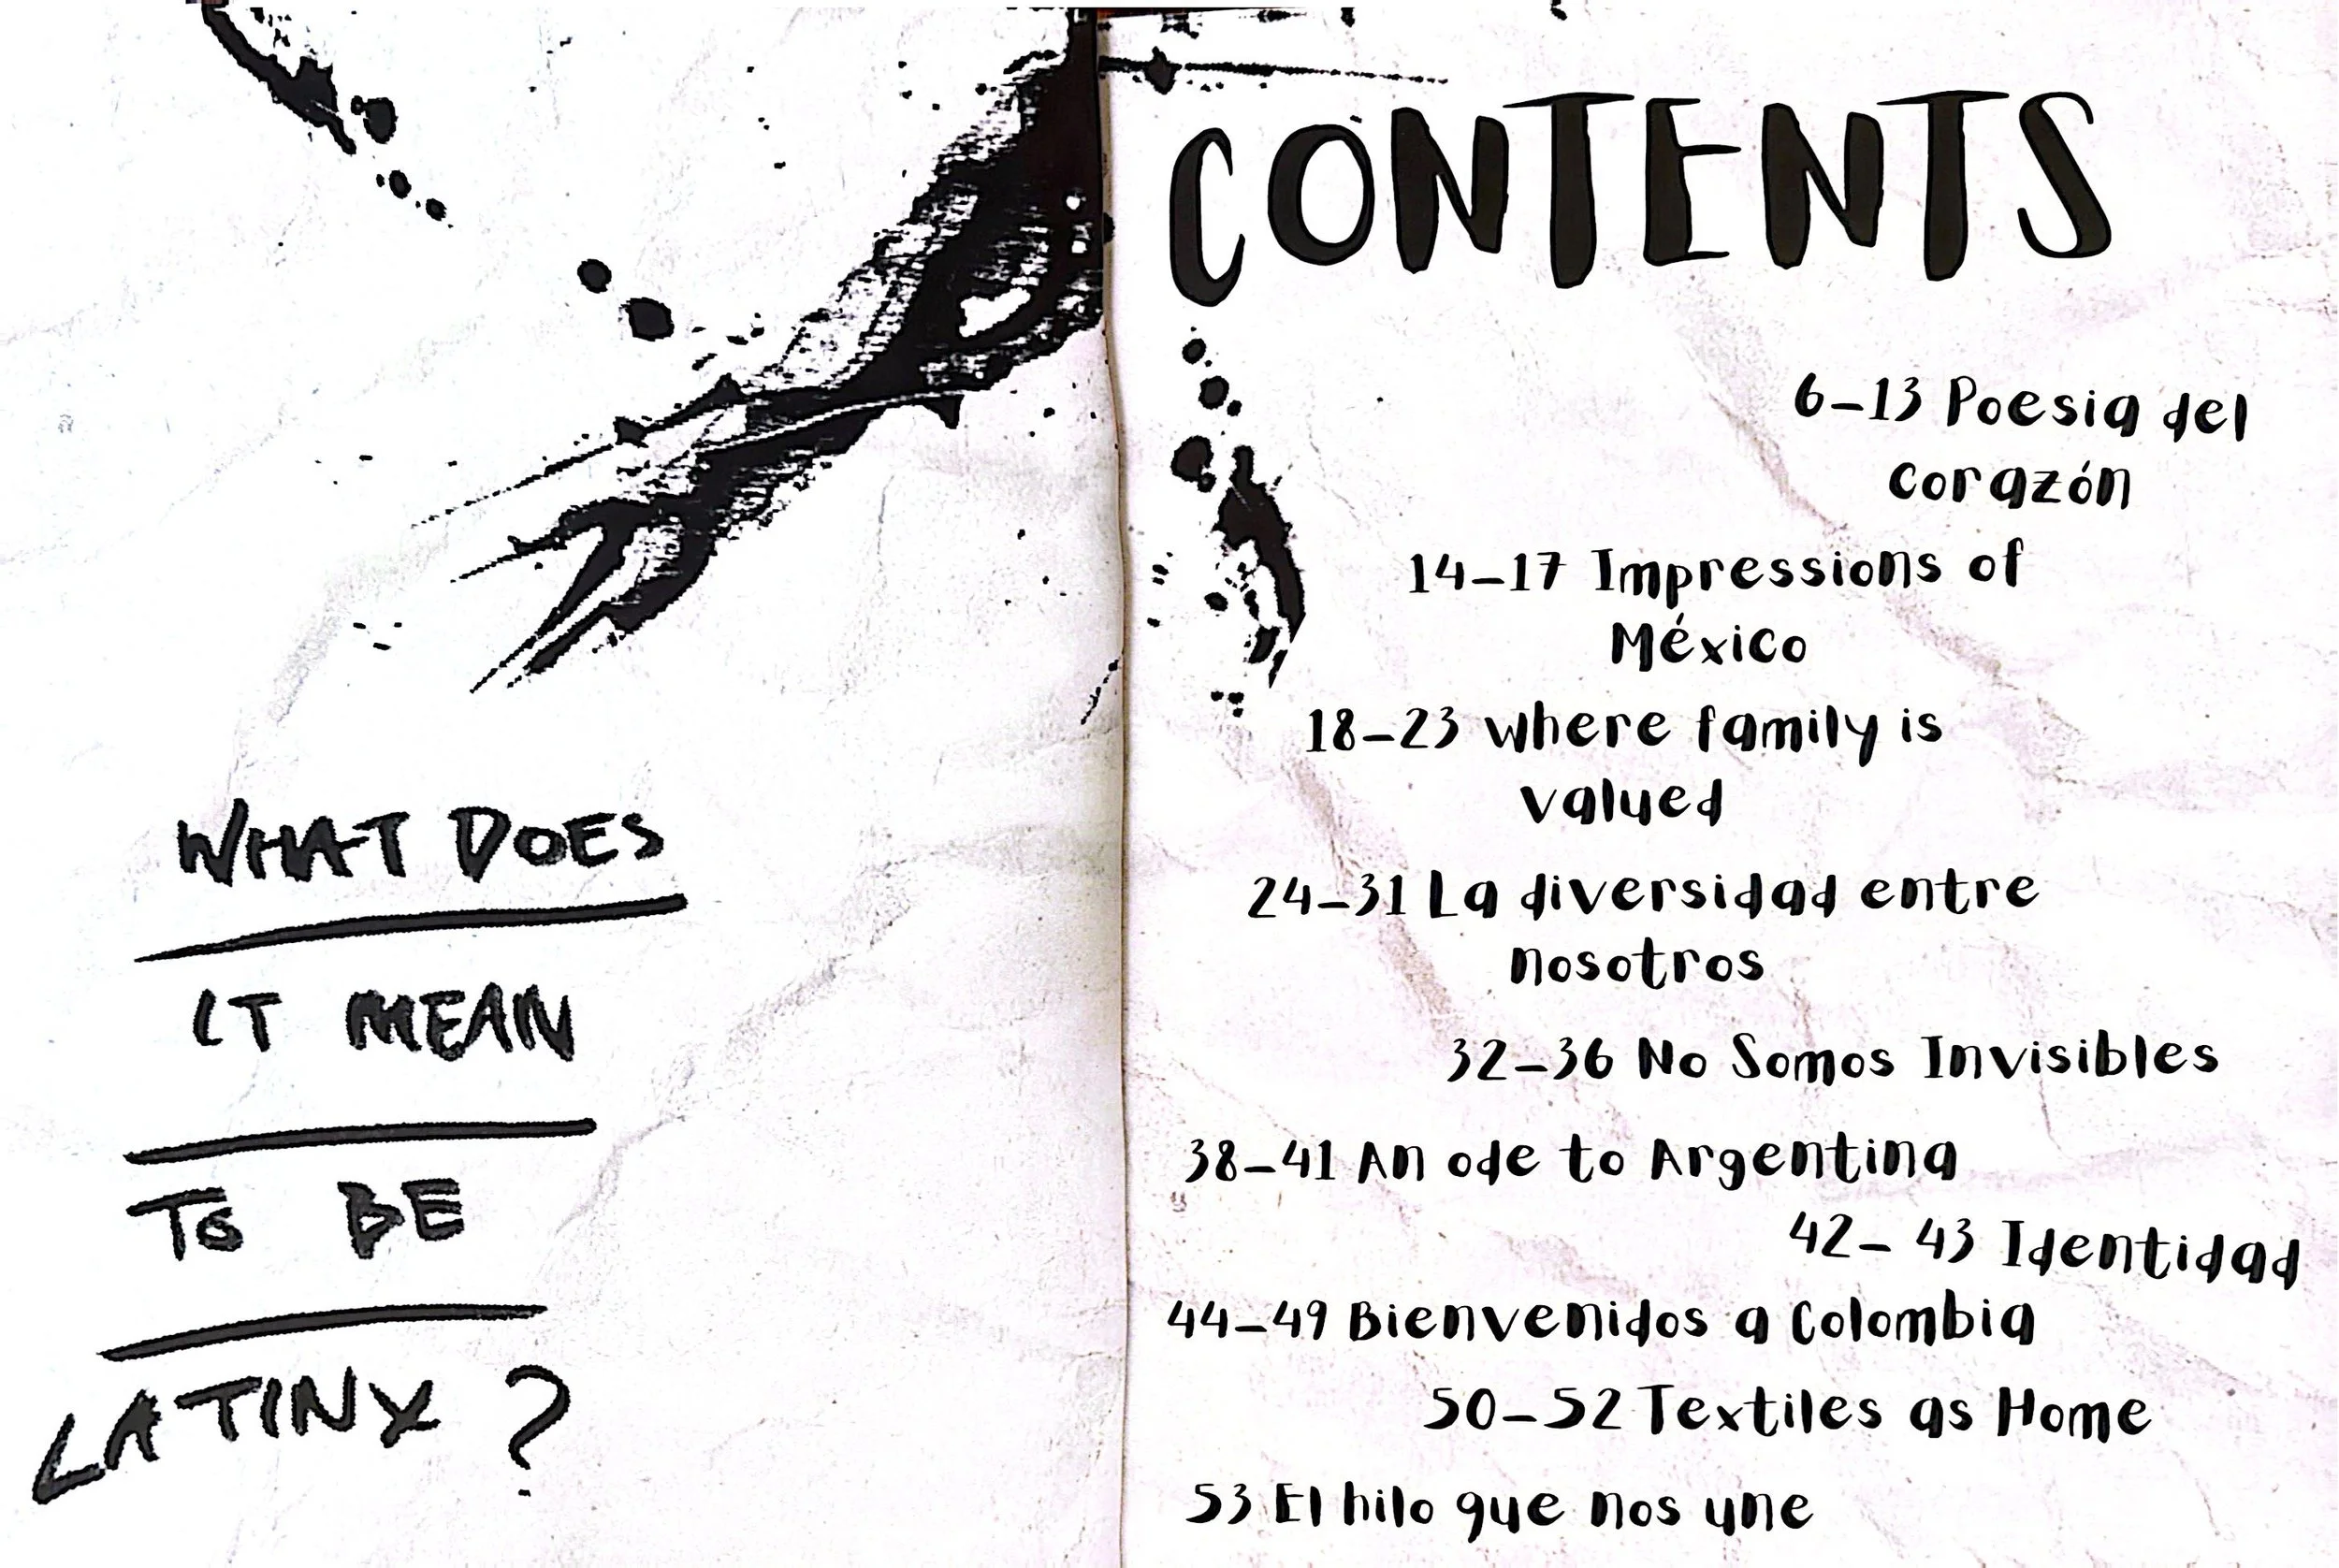 WHAT DOES
IT MEAN
TO BE
LATINX ?
CONTENTS
6-13 Poesia del
corazón
14-17 Impressions of
México
18-23 where family is
valued
24-31 La diversidad entre
nosotros
32-36 No Somos Invisibles
38-41 An ode to Argentina
42- 43 Identidad
44-49 Bienvenidos a Colombia
50-52 Textiles as Home
53 El hilo que nos une